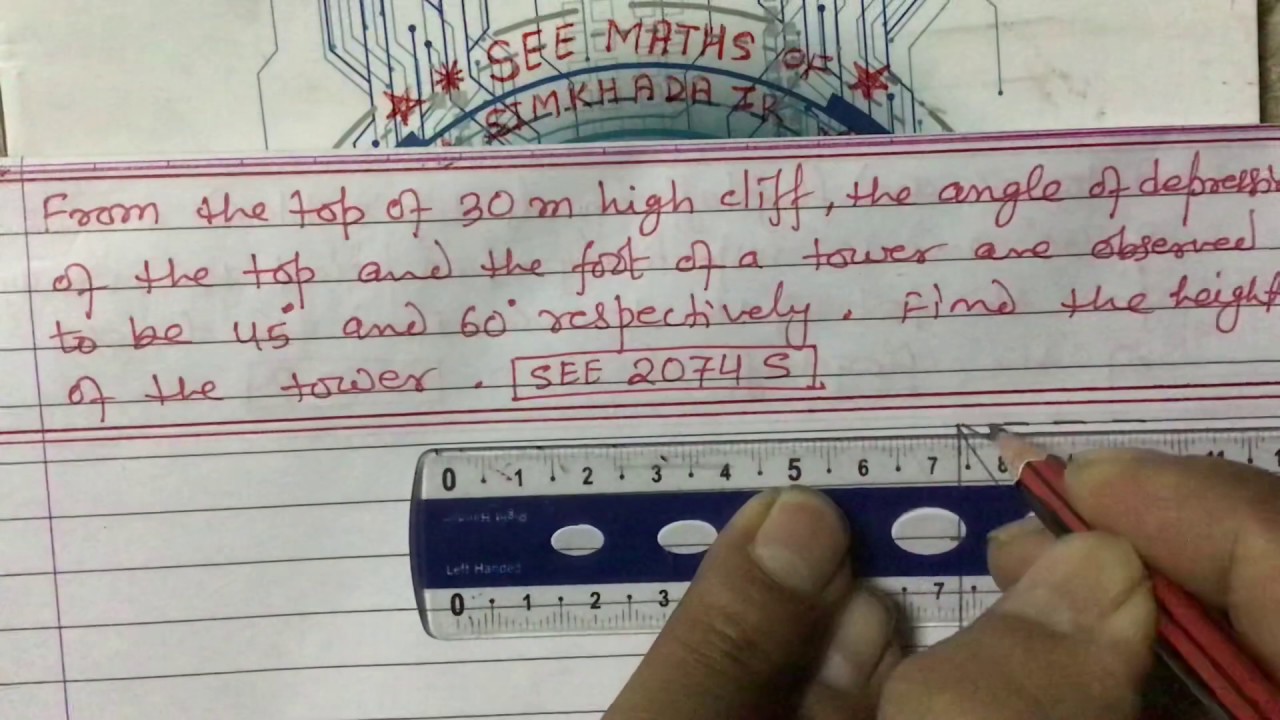 SEE MATHS OF
SIMKHADA IR
From the top of 30 m high cliff, the angle of depressi
of the top and the foot of a tower are observed
to be 45° and 60° respectively. Find the height
of the tower. SEE 2074 S
0 1 2 3 4 5 6 7 8 11
Left Handed
0 1 2 3 7